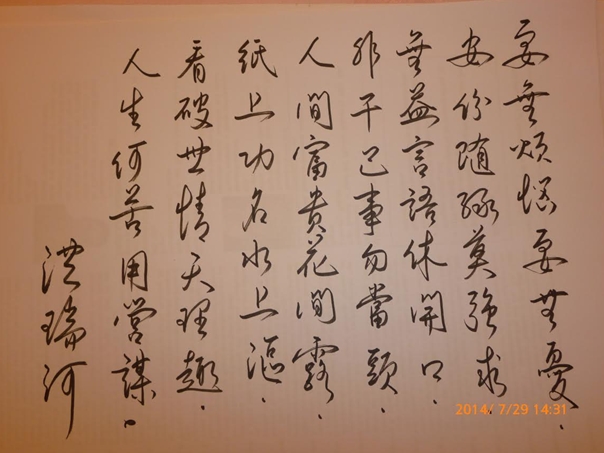 要無煩惱要無憂.
安份隨緣莫強求.
無益言語休開口.
非干己事勿當頭.
人間富貴花間露.
紙上功名水上漚.
看破世情天理趣.
人生何苦用營謀.
洪瑞河
2014/ 7/29 14:31